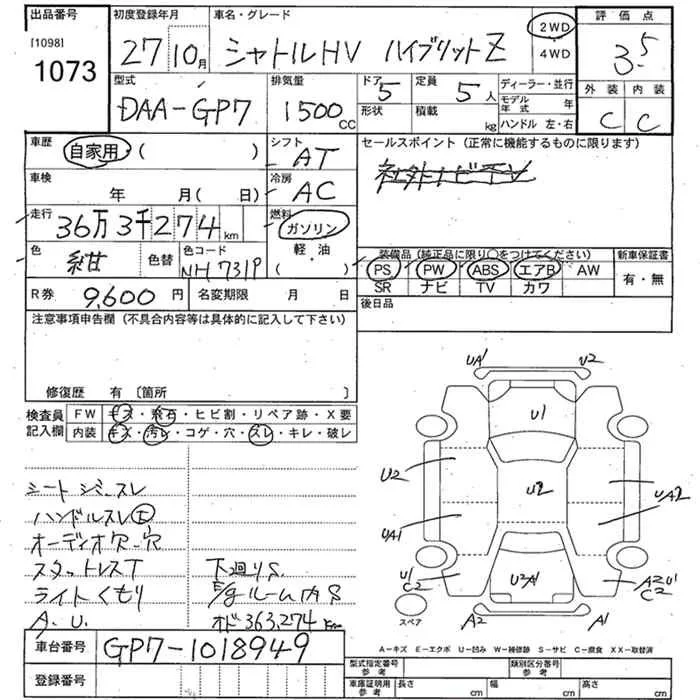 出品番号 初度登録年月 車名・グレード 評価点
[1098] 1073
27 10月 シャトルHV ハイブリットZ 2WD 4WD 3.5
型式 排気量 ドア 5 定員 5人 ディーラー・並行 外装 内装
DAA-GP7 1500cc 形状 積載 kg モデル年式 年 ハンドル 左・右 C C
車歴 自家用 ( ) シフト AT セールスポイント (正常に機能するものに限ります)
車検 年 月( 日) 冷房 AC 社外ナビTV
走行 36万3千274km 燃料 ガソリン
軽・油 ( )
色 紺 色替 色コード NH731P
装備品 (純正品に限り○をつけてください) 新車保証書
PS PW ABS エアB AW 有・無
SR ナビ TV カワ
R券 9,600円 名変期限 月 日 後日品
注意事項申告欄 (不具合内容等は具体的に記入して下さい)
修復歴 有 〔箇所 〕
検査員記入欄 FW キズ・飛石・ヒビ割・リペア跡・X要
内装 キズ・汚レ・コゲ・穴・スレ・キレ・破レ
シートシミ・スレ
ハンドルスレ
オーディオ欠・穴
スタットレスT 下廻りS.
ライトくもり E/gルーム内S
A.U. オド363,274km
UA1 U2
U1
U2 U2 UA2
UA1
U1 C2 U2A1 A2U1 C2
スペア A2 A1
A-キズ E-エクボ U-凹み W-補修跡 S-サビ C-腐食 XX-取替済
車台番号 GP7-1018949
登録番号
型式指定番号 参考 類別区分番号 参考
車庫証明用 参考 長さ cm 幅 cm 高さ cm